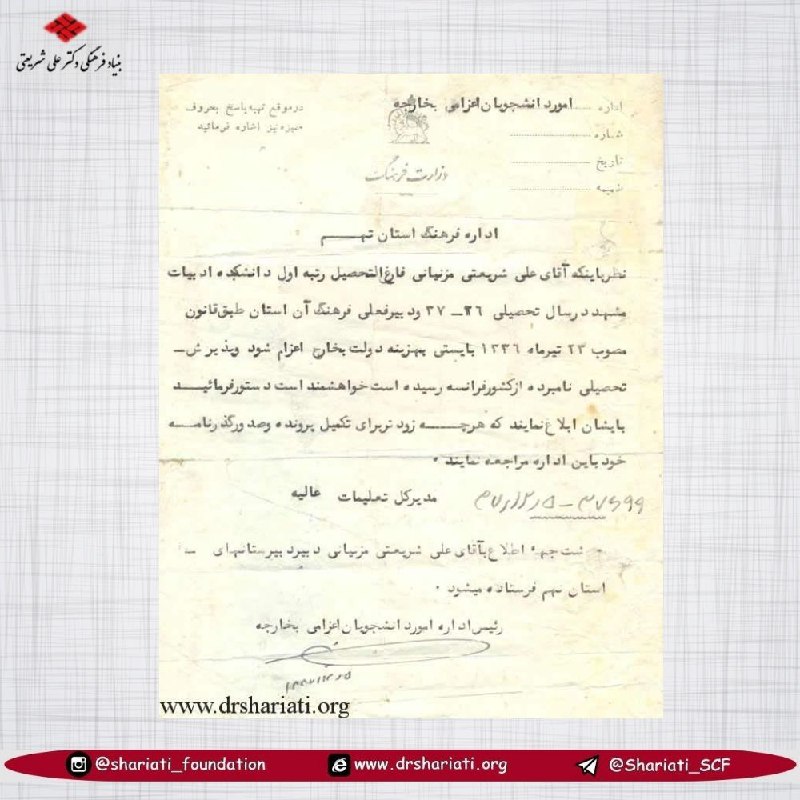 بنیاد فرهنگی دکتر علی شریعتی
اداره امورد انشجویان اعزامی بخارجه
شماره
تاریخ
ضمیمه
در موقع تهیه پاسخ بحروف
ممیزه نیز اشاره فرمائید
وزارت فرهنگ
اداره فرهنگ استان نهم
نظرباینکه آقای علی شریعتی مزینانی فارغ التحصیل رتبه اول دانشکده ادبیات
مشهد در سال تحصیلی ۳۶ـ ۳۷ ودبیرفعلی فرهنگ آن استان طبق قانون
مصوب ۲۳ تیرماه ۱۳۳۶ بایستی بهزینه دولت بخارج اعزام شود وپذیرش
تحصیلی نامبرده ازکشورفرانسه رسیده است خواهشمند است دستورفرمائید
بایشان ابلاغ نمایند که هرچه زودتربرای تکمیل پرونده وصدورگذرنامه
خود باین اداره مراجعه نمایند ۰
مدیرکل تعلیمات عالیه
اطلاع بآقای علی شریعتی مزینانی دبیردبیرستانهای
استان نهم فرستاده میشود ۰
رئیس اداره امورد انشجویان اعزامی بخارجه
www.drshariati.org
@shariati_foundation
www.drshariati.org
@Shariati_SCF